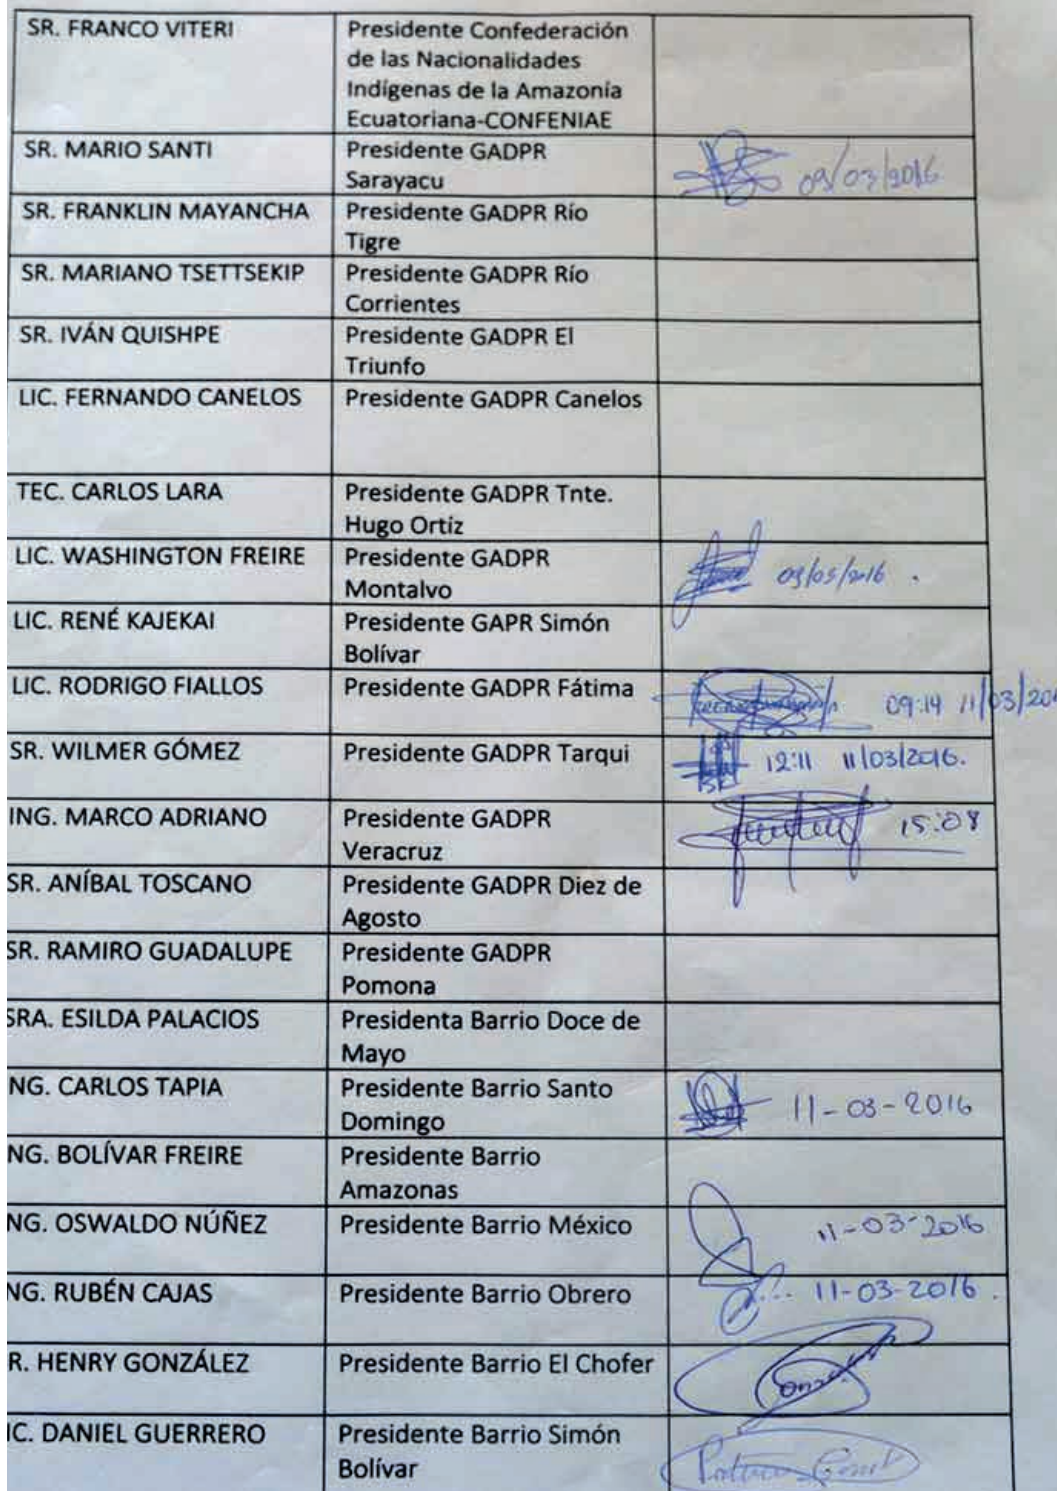 SR. FRANCO VITERI
Presidente Confederación
de las Nacionalidades
Indígenas de la Amazonía
Ecuatoriana-CONFENIAE
SR. MARIO SANTI
Presidente GADPR
Sarayacu
09/03/2016
SR. FRANKLIN MAYANCHA
Presidente GADPR Río
Tigre
SR. MARIANO TSETTSEKIP
Presidente GADPR Río
Corrientes
SR. IVÁN QUISHPE
Presidente GADPR El
Triunfo
LIC. FERNANDO CANELOS
Presidente GADPR Canelos
TEC. CARLOS LARA
Presidente GADPR Tnte.
Hugo Ortíz
LIC. WASHINGTON FREIRE
Presidente GADPR
Montalvo
LIC. RENÉ KAJEKAI
Presidente GAPR Simón
Bolívar
LIC. RODRIGO FIALLOS
Presidente GADPR Fátima
09:14 11/03/201
SR. WILMER GÓMEZ
Presidente GADPR Tarqui
12:11 11/03/2016.
ING. MARCO ADRIANO
Presidente GADPR
Veracruz
15:08
SR. ANÍBAL TOSCANO
Presidente GADPR Diez de
Agosto
SR. RAMIRO GUADALUPE
Presidente GADPR
Pomona
SRA. ESILDA PALACIOS
Presidenta Barrio Doce de
Mayo
NG. CARLOS TAPIA
Presidente Barrio Santo
Domingo
11-03-2016
NG. BOLÍVAR FREIRE
Presidente Barrio
Amazonas
NG. OSWALDO NÚÑEZ
Presidente Barrio México
11-03-2016
NG. RUBÉN CAJAS
Presidente Barrio Obrero
11-03-2016.
R. HENRY GONZÁLEZ
Presidente Barrio El Chofer
IC. DANIEL GUERRERO
Presidente Barrio Simón
Bolívar